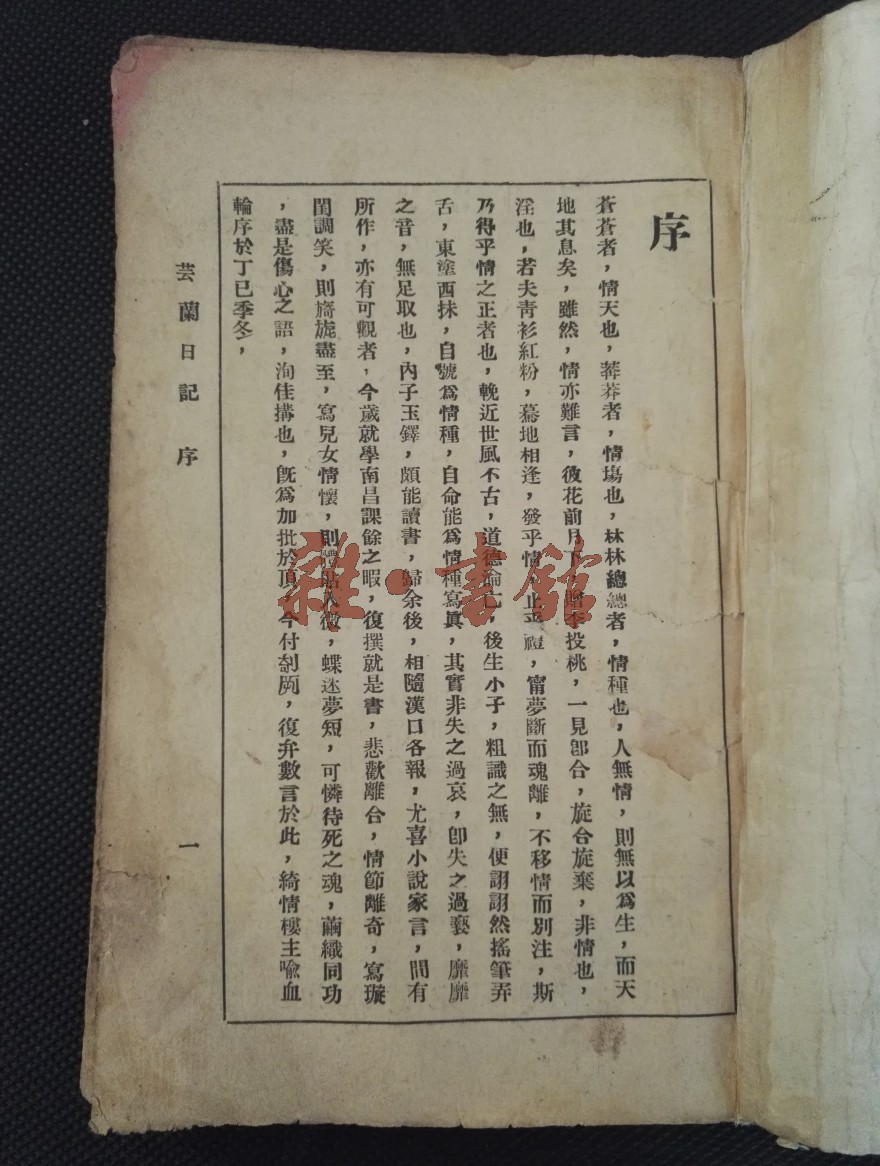 序
蒼蒼者，情天也，莽莽者，情場也，林林總總者，情種也，人無情，則無以爲生，而天
地其息矣，雖然，情亦難言，彼花前月下，贈李投桃，一見卽合，旋合旋棄，非情也，
淫也，若夫青衫紅粉，驀地相逢，發乎情，止乎禮，甯夢斷而魂離，不移情而別注，斯
乃得乎情之正者也，輓近世風不古，道德淪亡，後生小子，粗識之無，便詡詡然搖筆弄
舌，東塗西抹，自號爲情種，自命能爲情種寫眞，其實非失之過哀，卽失之過褻，靡靡
之音，無足取也，內子玉鐸，頗能讀書，歸余後，相隨漢口各報，尤喜小說家言，間有
所作，亦有可觀者，今歲就學南昌課餘之暇，復撰就是書，悲歡離合，情節離奇，寫璇
閨調笑，則旖旎盡至，寫兒女情懷，則體貼入微，蝶迷夢短，可憐待死之魂，繭織同功
，盡是傷心之語，洵佳搆也，旣爲加批於頂，今付剞劂，復弁數言於此，綺情樓主喻血
輪序於丁巳季冬，
芸蘭日記 序 一
雜·書館